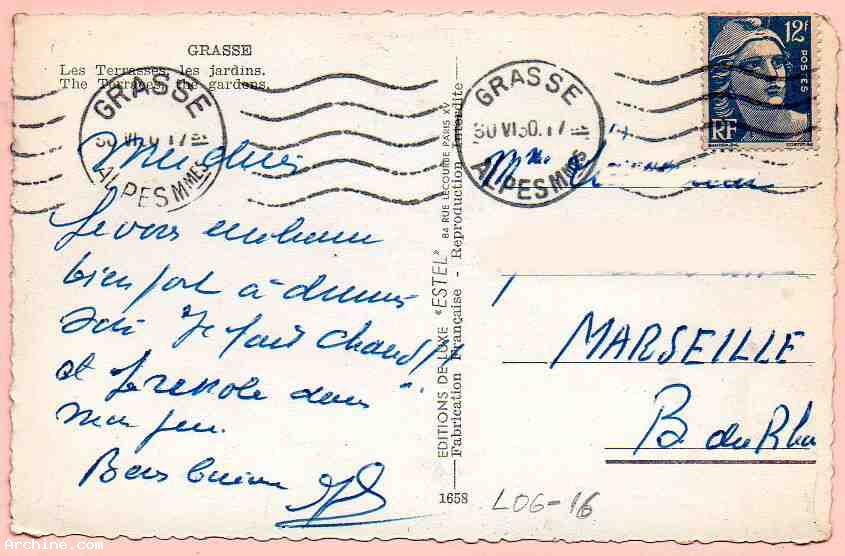 GRASSE
Les Terrasses, les jardins.
The Terraces, the gardens.
GRASSE
ALPES MMES
Je vous embrasse
bien fort à demain
soir Il fait chaud
et je
mon jeu.
Bons baisers
EDITIONS DE LUXE «ESTEL» 84 RUE LECOURBE PARIS XV
Fabrication Française - Reproduction Interdite
1658
GRASSE
30 VI 50.17
ALPES MMES
12F
POSTES
RF
Mme
MARSEILLE
B. du Rhône
LOG-16
Archine.com